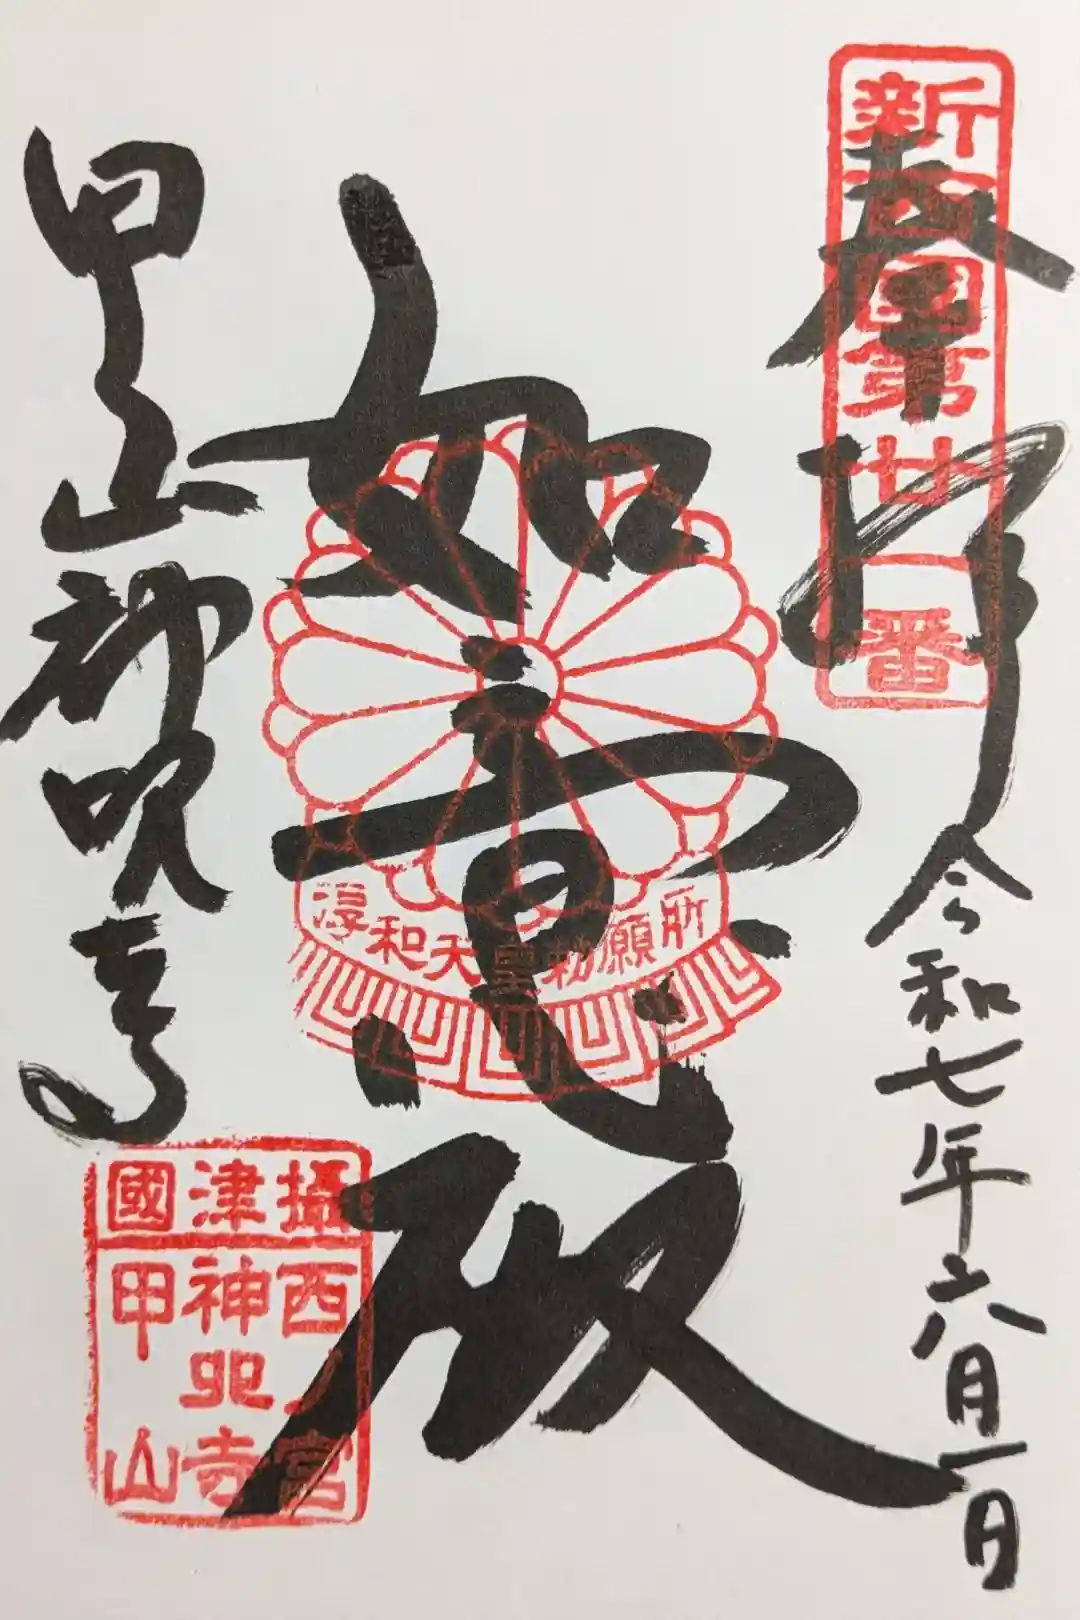 奉拝
新西國第廿一番
令和七年六月一日
如意殿
淳和天皇勅願所
甲山神呪寺
攝津國
西ノ宮
神呪寺
甲山